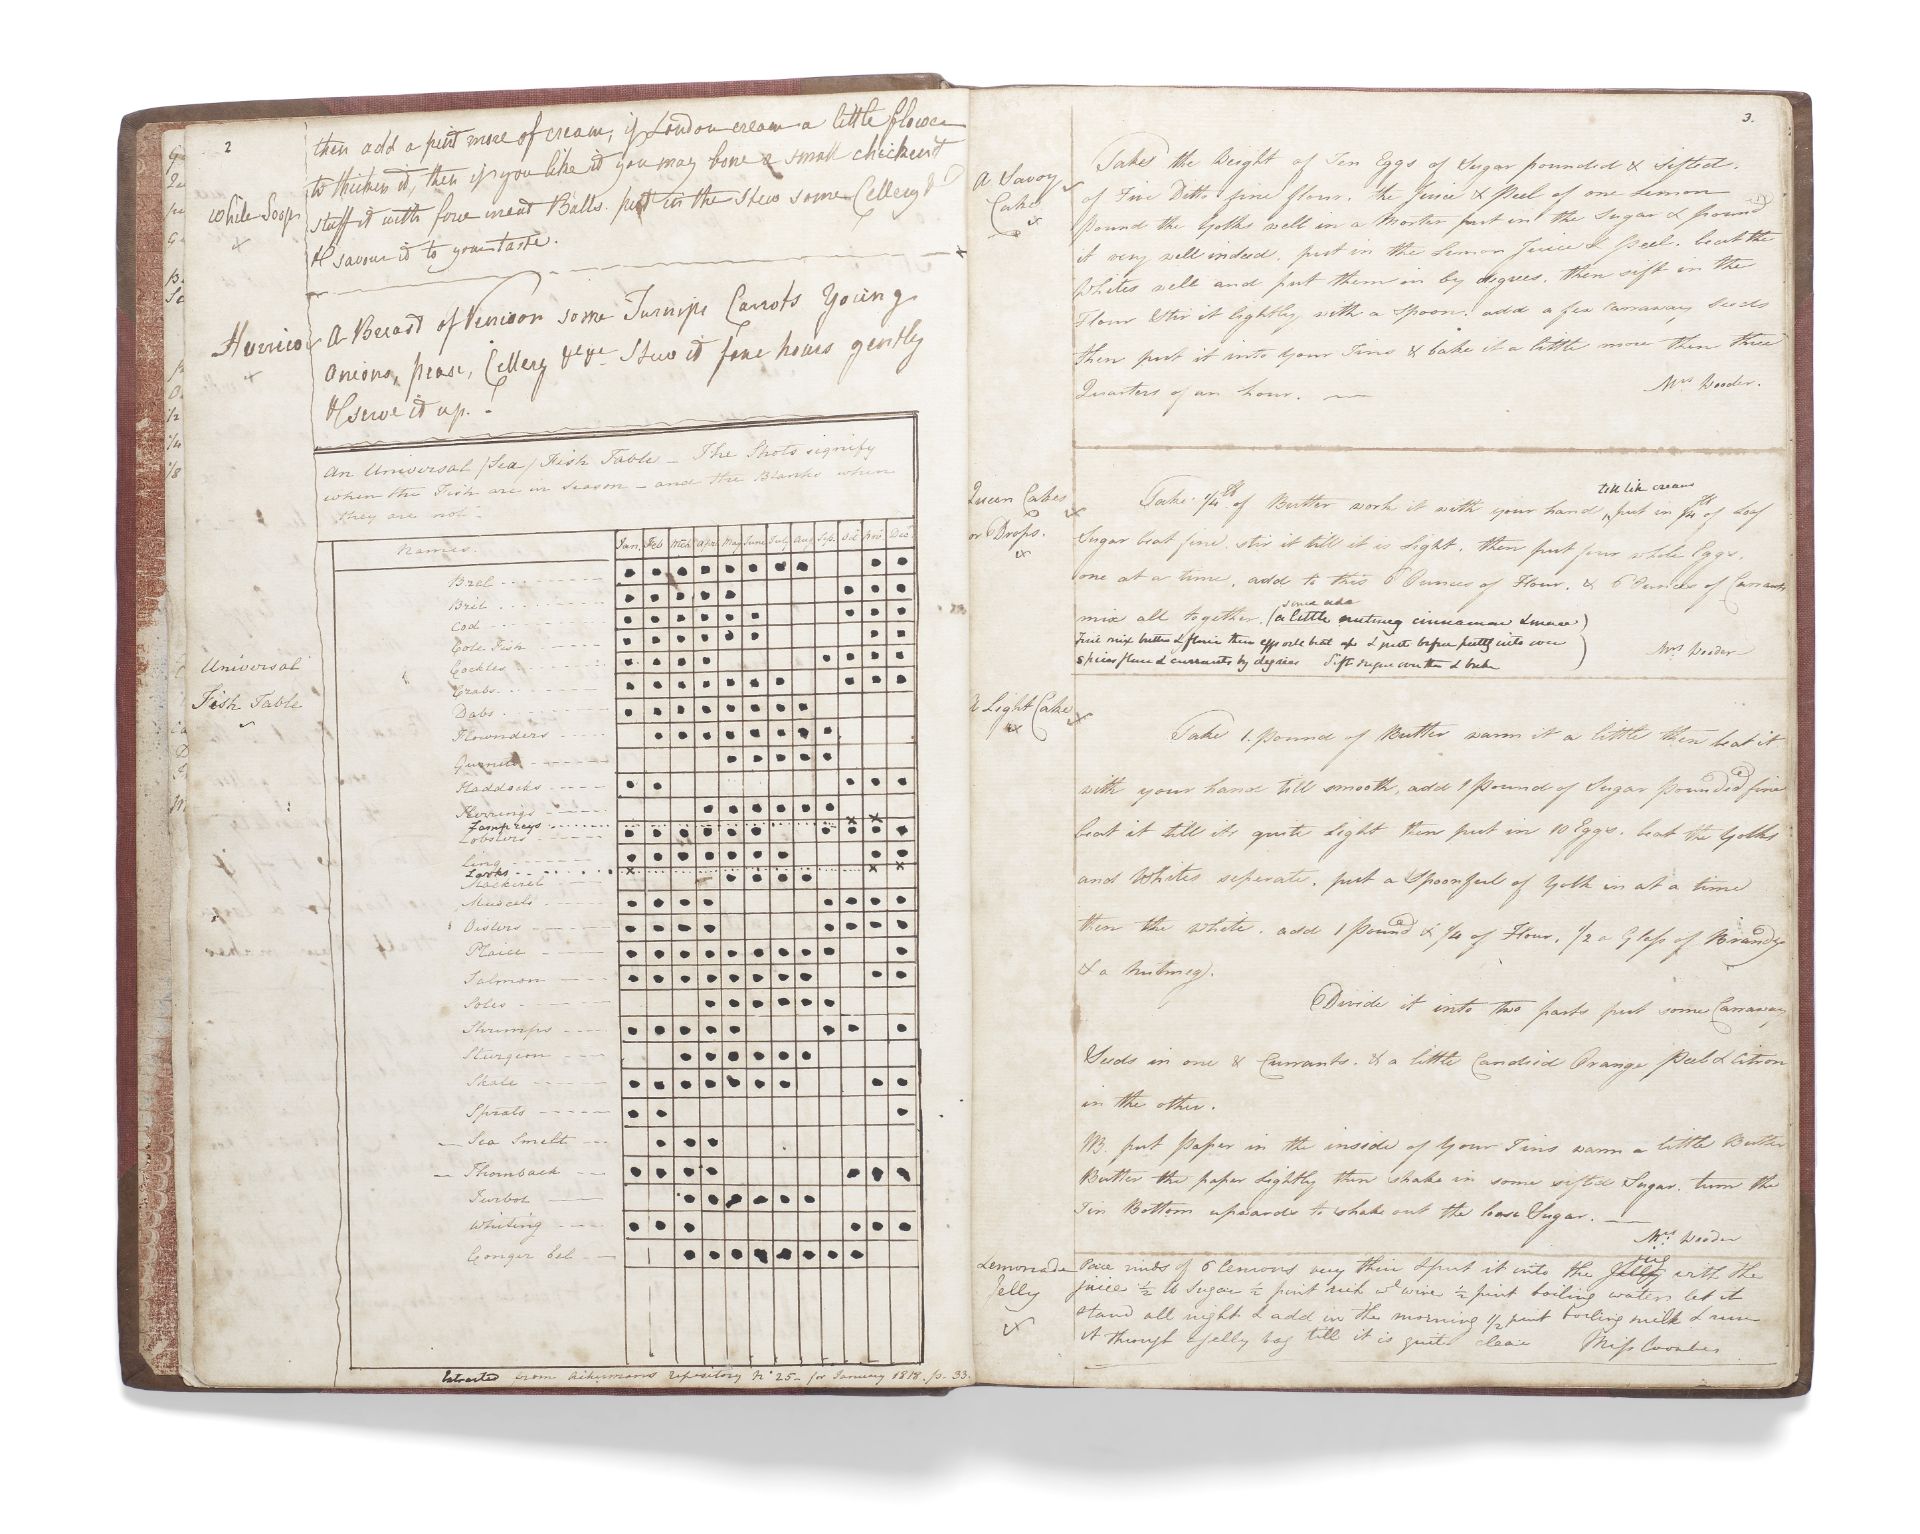 2
then add a pint more of cream, if London cream a little flower
to thicken it, then if you like it you may bone a small chicken &
White Soop
stuff it with force meat Balls. put in the Stew some Cellery &
& savour it to your taste.
Harrico
A Breast of Venison some Turnips Carrots Young
onions, pease, Cellery &c &c Stew it four hours gently
& serve it up.
Universal
Fish Table
An Universal (Sea) Fish Table _ The Spots signify
when the Fish are in season _ and the Blanks when
they are not _
Names. Jan. Feb Mch Apr May June July Aug Sep. Oct Nov Dec
Bril
Cod
Cole Fish
Cockles
Crabs
Dabs
Flownders
Gurnets
Haddocks
Herrings
Lampreys
Lobsters
Ling
Mackerel
Muscels
Oisters
Plaice
Salmon
Soles
Shrimps
Sturgeon
Skate
Sprats
Sea Smelt
Thornback
Turbot
Whiting
Conger Eel
Extracted from Ackermans repository No 25 _ for January 1818. p. 33.
3.
A Savoy
Cake
Take the Weight of Ten Eggs of Sugar pounded & sifted.
of Five Ditto fine flour. the Juice & Peel of one Lemon
pound the Yolks well in a Morter put in the Sugar & pound
it very well indeed. put in the Lemon Juice & Peel. beat the
Whites well and put them in by degrees. then sift in the
Flour & stir it lightly with a Spoon. add a few carraway seeds
then put it into your Tins & bake it a little more then three
Quarters of an hour. Mrs Wooder.
Queen Cakes
or Drops.
till like cream
Take 1/4 th of Butter work it with your hand, put in 1/4 th of Loaf
Sugar beat fine. stir it till it is Light. then put four whole Eggs.
one at a time. add to this 6 Ounces of Flour. & 6 Ounces of Currants
some add
mix all together. (a little nutmeg cinnamon & mace)
First mix butter & flour then eggs well beat up & just before putting into oven
spices flour & currants by degrees Sift sugar over them & bake
Mrs Wooder
A Light Cake
Take 1. pound of Butter warm it a little then beat it
with your hand till smooth, add 1 pound of Sugar pounded fine
beat it till its quite Light then put in 10 Eggs. beat the Yolks
and Whites seperate. put a Spoonful of Yolk in at a time
then the white. add 1 pound & 1/4 of Flour. 1/2 a Glass of Brandy
& a Nutmeg.
Divide it into two parts put some Carraway
Seeds in one & Currants. & a little Candied Orange Peel & Citron
in the other.
NB. put Paper in the inside of Your Tins warm a little Butter
Butter the paper Lightly then shake in some sifted Sugar. turn the
Tin Bottom upwards to shake out the loose Sugar.
Mrs Wooder
Lemonade
Jelly
Pare rinds of 6 Lemons very thin & put it into the Jelly jug with the
juice 1/2 lb Sugar 1/2 pint rich wt wine 1/2 pint boiling water let it
stand all night & add in the morning 1/2 pint boiling milk & run
it through a jelly bag till it is quite clear Miss Coombes